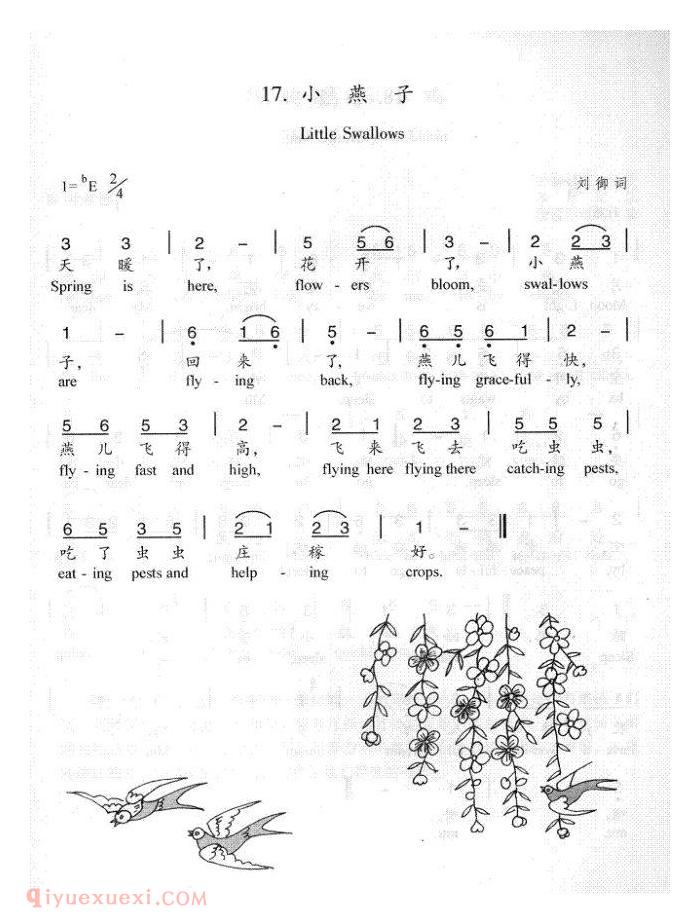 17. 小 燕 子
Little Swallows
1=ᵇE 2/4 刘 御 词
3 3 | 2 – | 5 5 6 | 3 – | 2 2 3 |
天 暖 了, 花 开 了, 小 燕
Spring is here, flow - ers bloom, swal-lows
1 – | 6 1 6 | 5 – | 6 5 6 1 | 2 – |
子, 回 来 了, 燕 儿 飞 得 快,
are fly - ing back, fly-ing grace-ful - ly,
5 6 5 3 | 2 – | 2 1 2 3 | 5 5 5 |
燕 儿 飞 得 高, 飞 来 飞 去 吃 虫 虫,
fly - ing fast and high, flying here flying there catch-ing pests,
6 5 3 5 | 2 1 2 3 | 1 – ‖
吃 了 虫 虫 庄 稼 好
eat - ing pests and help - ing crops.
qiyuexuexi.com